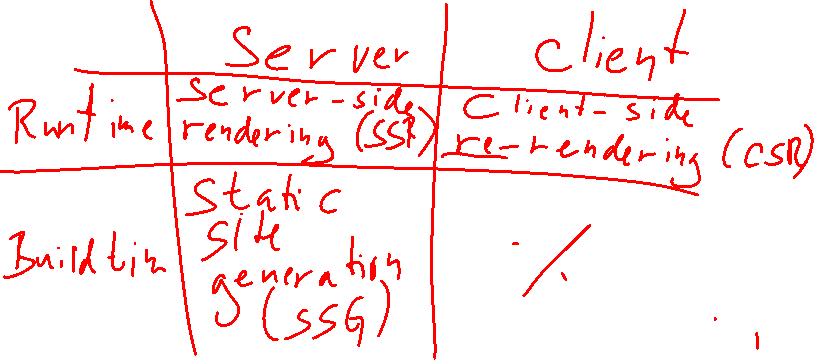 Server Client
Runtime Server-side rendering (SSR) Client-side re-rendering (CSR)
Buildtim Static site generation (SSG) ·/.